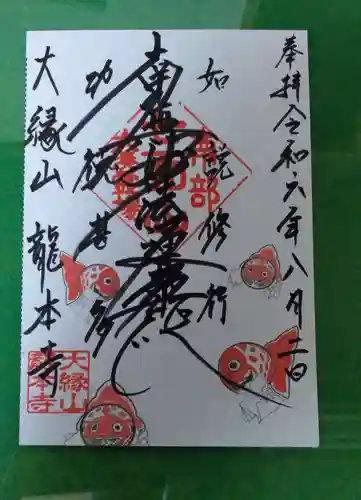 奉拝 令和六年八月二日
如説修行
南無妙法蓮華経
功徳甚多
大縁山 龍本寺
大縁山
龍本寺